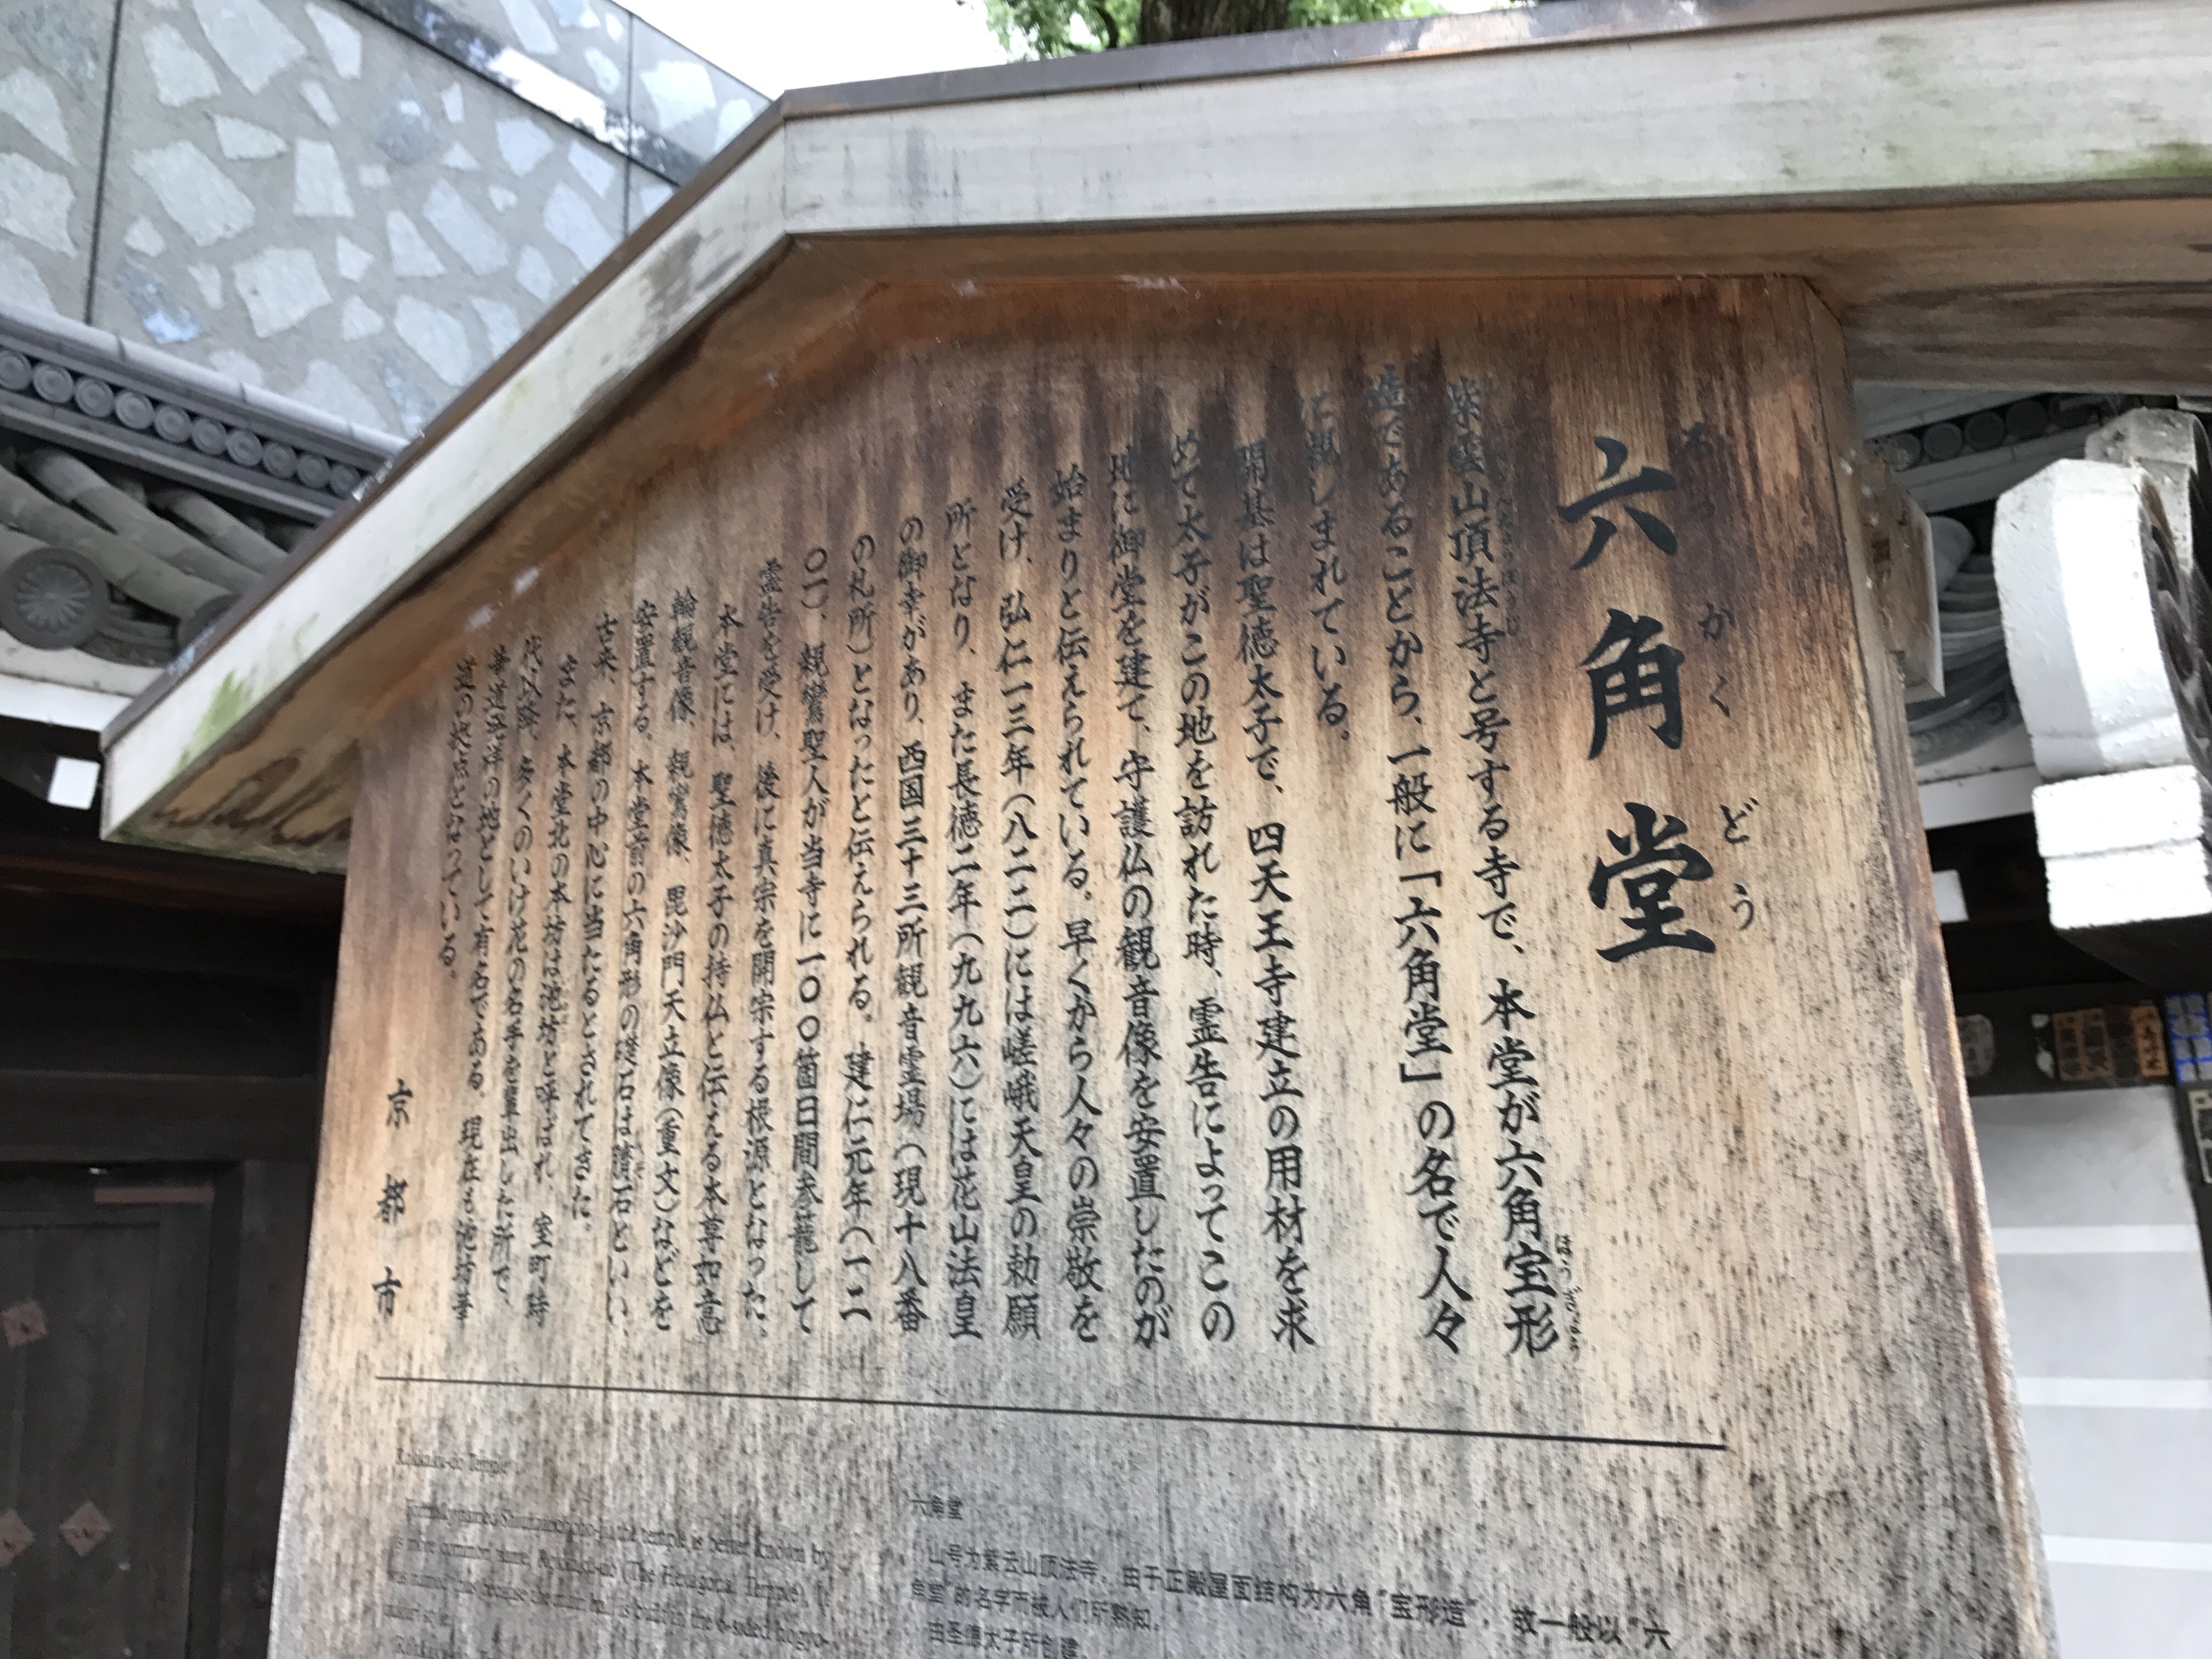 六角堂
ろっかくどう
紫雲山頂法寺と号する寺で、本堂が六角宝形
ほうぎょう
造であることから、一般に「六角堂」の名で人々
に親しまれている。
開基は聖徳太子で、四天王寺建立の用材を求
めて太子がこの地を訪れた時、霊告によってこの
地に御堂を建て、守護仏の観音像を安置したのが
始まりと伝えられている。早くから人々の崇敬を
受け、弘仁一三年(八二二)には嵯峨天皇の勅願
所となり、また長徳二年(九九六)には花山法皇
の御幸があり、西国三十三所観音霊場(現十八番
の札所)となったと伝えられる。建仁元年(一二
〇一)、親鸞聖人が当寺に一〇〇箇日間参籠して
霊告を受け、後に真宗を開宗する根源となった。
本堂には、聖徳太子の持仏と伝える本尊如意
輪観音像、親鸞像、毘沙門天立像(重文)などを
安置する。本堂前の六角形の礎石は臍石といい、
古来、京都の中心に当たるとされてきた。
また、本堂北の本坊は池坊と呼ばれ、室町時
代以降、多くのいけ花の名手を輩出した所で、
華道発祥の地として有名である。現在も池坊華
道の拠点となっている。
京都市
Rokkaku-do Temple
Formally named Shiunzan Choho-ji, the temple is better known by
its more common name, Rokkaku-do (The Hexagonal Temple). It
was named thus because the main hall is built in the 6-sided hogyo-
六角堂
山号为紫云山顶法寺。由于正殿屋面结构为六角“宝形造”,故一般以“六
角堂”的名字而被人们所熟知。
由圣德太子所创建。